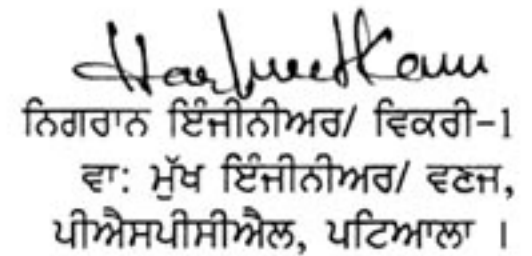 Harjneet Kaur
ਨਿਗਰਾਨ ਇੰਜੀਨੀਅਰ/ ਵਿਕਰੀ-1
ਵਾ: ਮੁੱਖ ਇੰਜੀਨੀਅਰ/ ਵਣਜ,
ਪੀਐਸਪੀਸੀਐਲ, ਪਟਿਆਲਾ ।